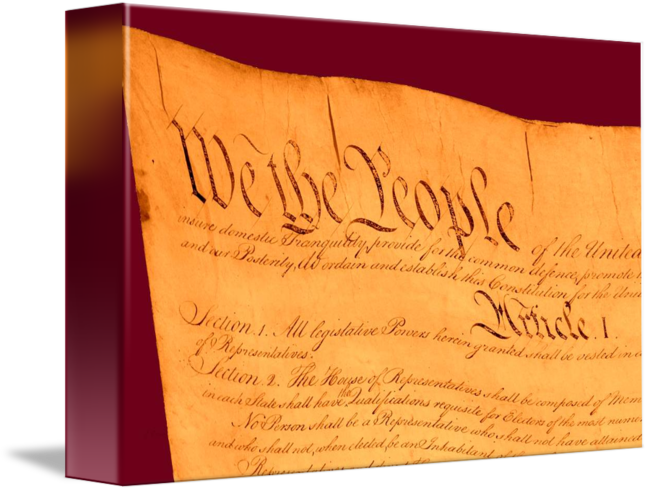 We the People of the United
insure domestic Tranquility, provide for the common defence, promote
and our Posterity, do ordain and establish this Constitution for the
Article. I.
Section. 1. All legislative Powers herein granted shall be vested in a
of Representatives.
Section. 2. The House of Representatives shall be composed of Mem
in each State shall have the Qualifications requisite for Electors of the most nume
No Person shall be a Representative who shall not have attained
and who shall not, when elected, be an Inhabitant of